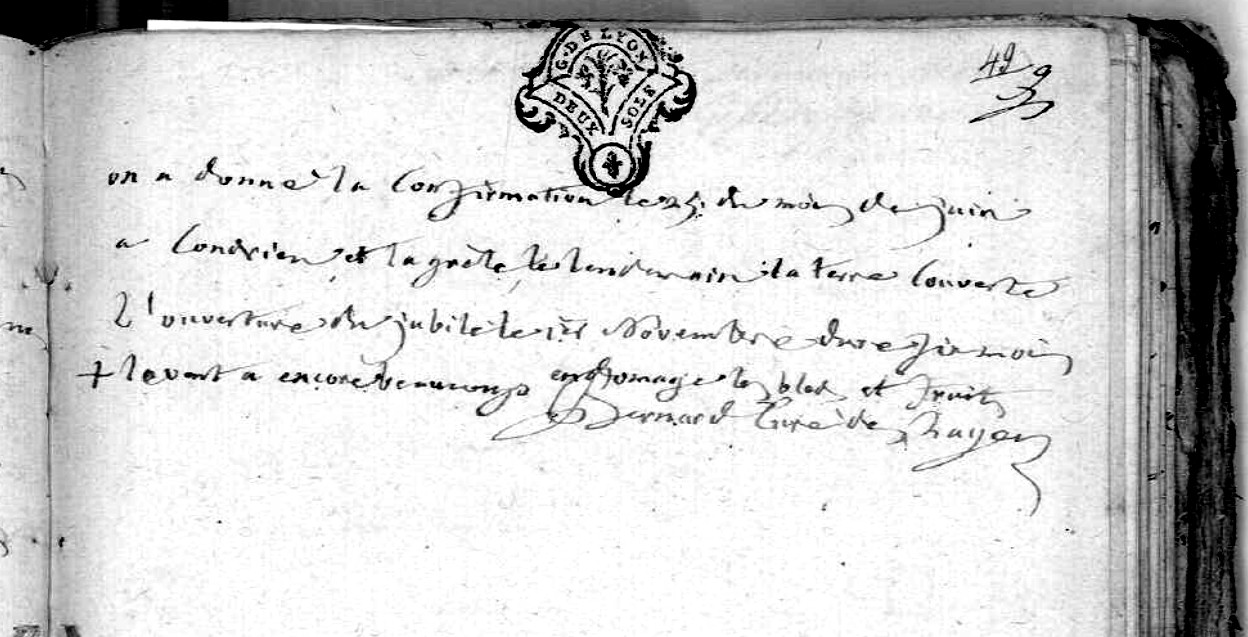 G. DE LYON
DEUX SOLS
49
on a donné la Confirmation le 25 du mois de juin
a Condrieu et la grêle le lendemain la terre Couverte
L'ouverture du jubilé le 1er Novembre durée six mois
+ le vent a encore beaucoup endomagé les bleds et fruits
Bernard Curé des hayes